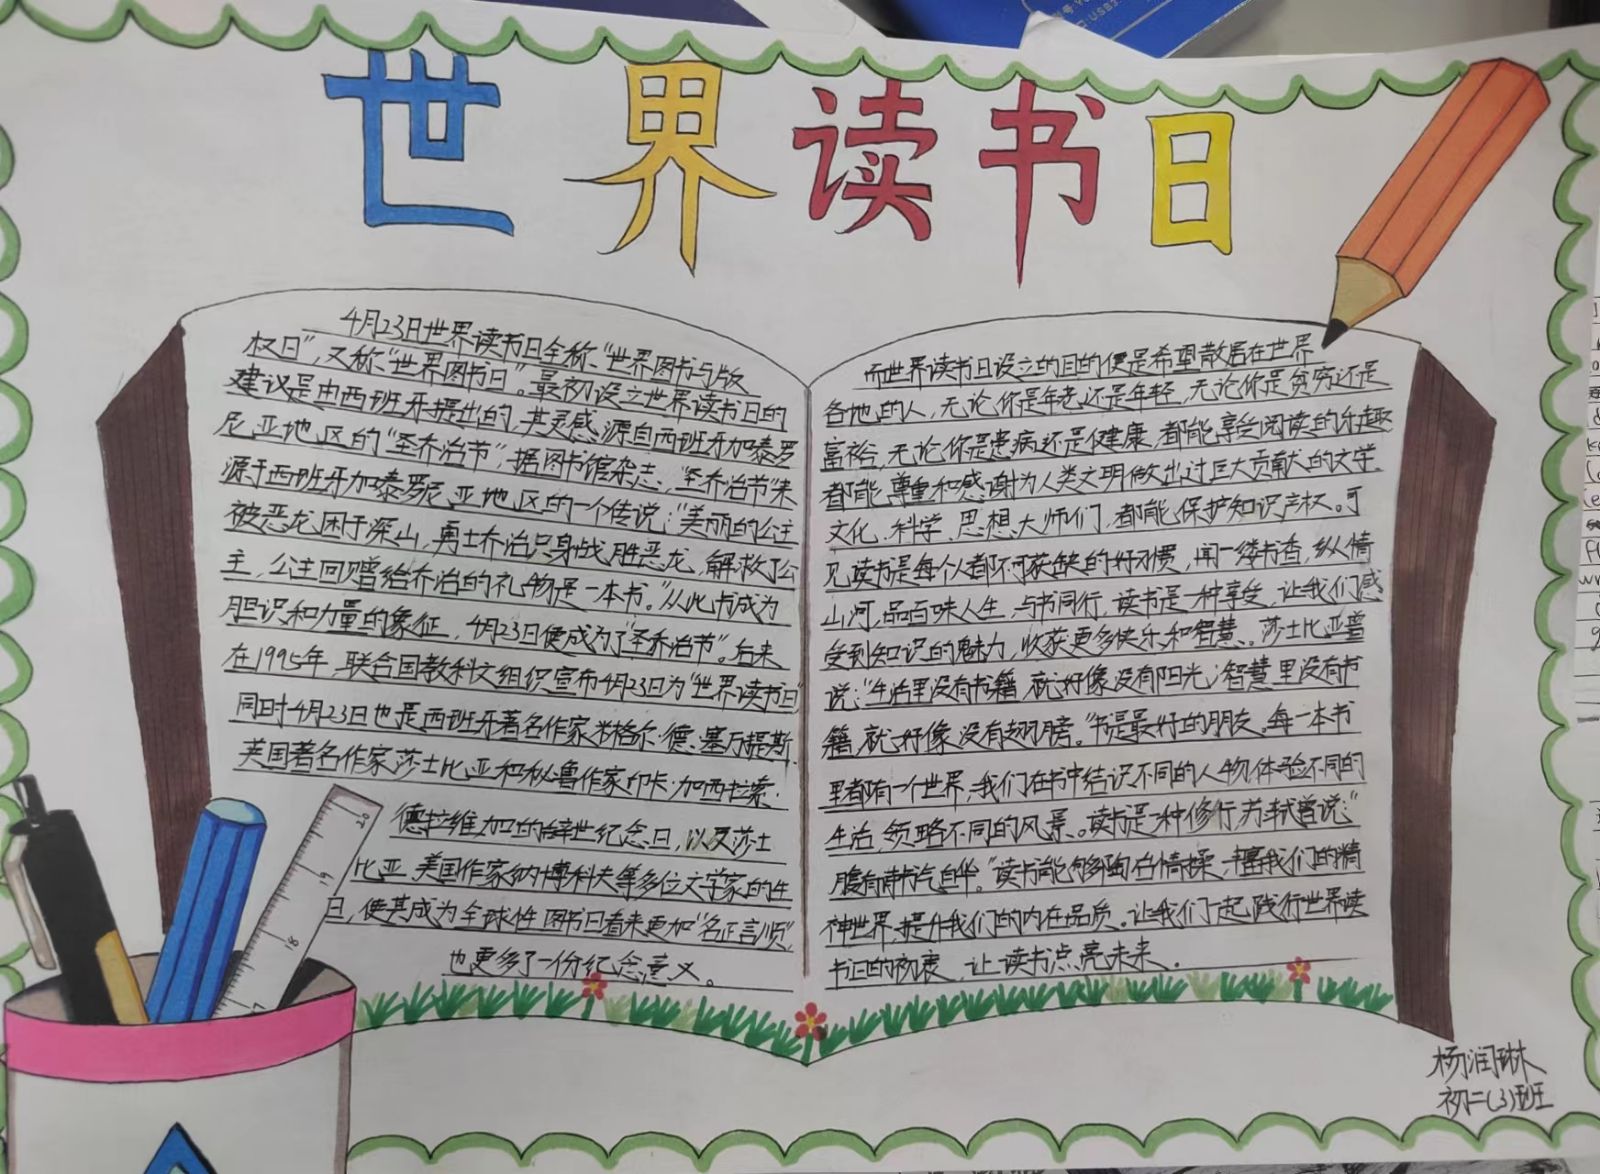 世界读书日
4月23日世界读书日全称“世界图书与版
权日”,又称“世界图书日”。最初设立世界读书日的
建议是由西班牙提出的,其灵感源自西班牙加泰罗
尼亚地区的“圣乔治节”,据图书馆杂志,“圣乔治节”来
源于西班牙加泰罗尼亚地区的一个传说:“美丽的公主
被恶龙困于深山,勇士乔治只身战胜恶龙,解救了公
主,公主回赠给乔治的礼物是一本书。”从此书成为
胆识和力量的象征,4月23日便成为了“圣乔治节”。后来
在1995年,联合国教科文组织宣布4月23日为“世界读书日”
同时4月23日也是西班牙著名作家米格尔·德·塞万提斯,
英国著名作家莎士比亚和秘鲁作家印卡·加西拉索·
德拉维加的辞世纪念日,以及莎士
比亚,美国作家纳博科夫等多位文学家的生
日,使其成为全球性图书日看来更加“名正言顺”,
也更多了一份纪念意义。
而世界读书日设立的目的便是希望散居在世界
各地的人,无论你是年老还是年轻,无论你是贫穷还是
富裕,无论你是患病还是健康,都能享受阅读的乐趣
都能尊重和感谢为人类文明做出过巨大贡献的文学、
文化、科学、思想大师们,都能保护知识产权。可
见读书是每个人都不可获缺的好习惯,闻一缕书香,纵情
山河,品百味人生,与书同行,读书是一种享受,让我们感
受到知识的魅力,收获更多快乐和智慧。莎士比亚曾
说:“生活里没有书籍,就好像没有阳光;智慧里没有书
籍,就好像没有翅膀。”书是最好的朋友。每一本书
里都有一个世界,我们在书中结识不同的人物,体验不同的
生活,领略不同的风景。读书是一种修行,苏轼曾说:“
腹有诗书气自华。”读书能够陶冶情操,丰富我们的精
神世界,提升我们的内在品质。让我们一起践行世界读
书日的初衷,让读书点亮未来。
杨润琳
初二(3)班
20
19
18
17